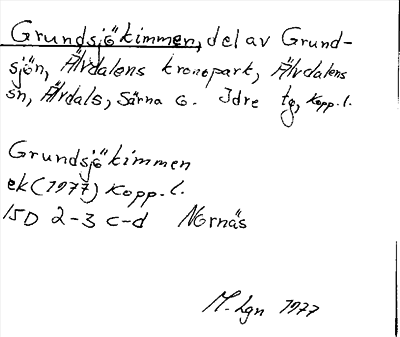 Grundsjökimmen, del av Grund-
sjön, Älvdalens kronopark, Älvdalens
sn, Älvdals, Särna o. Idre tg, Kopp. l.
Grundsjökimmen
ek (1977) Kopp. l.
15D 2-3 c-d Nornäs
M. Lgn 1977